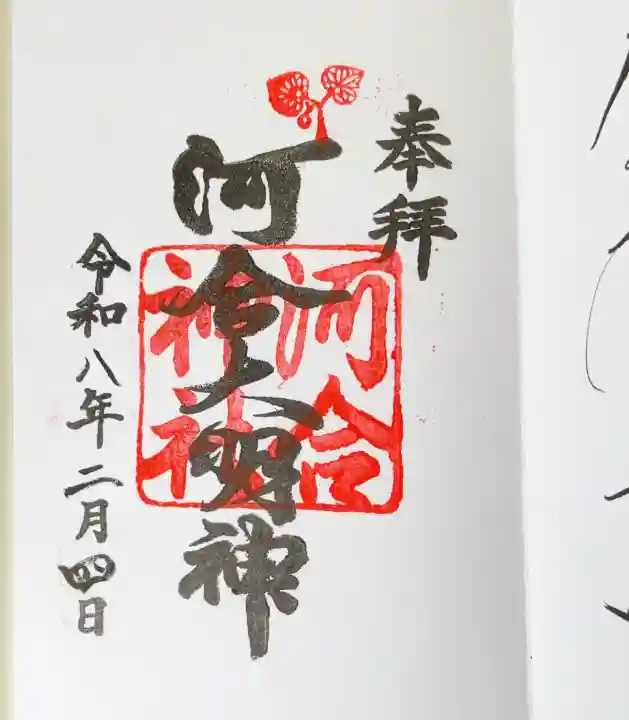 奉拝
河合大明神
河合
神社
令和八年二月四日